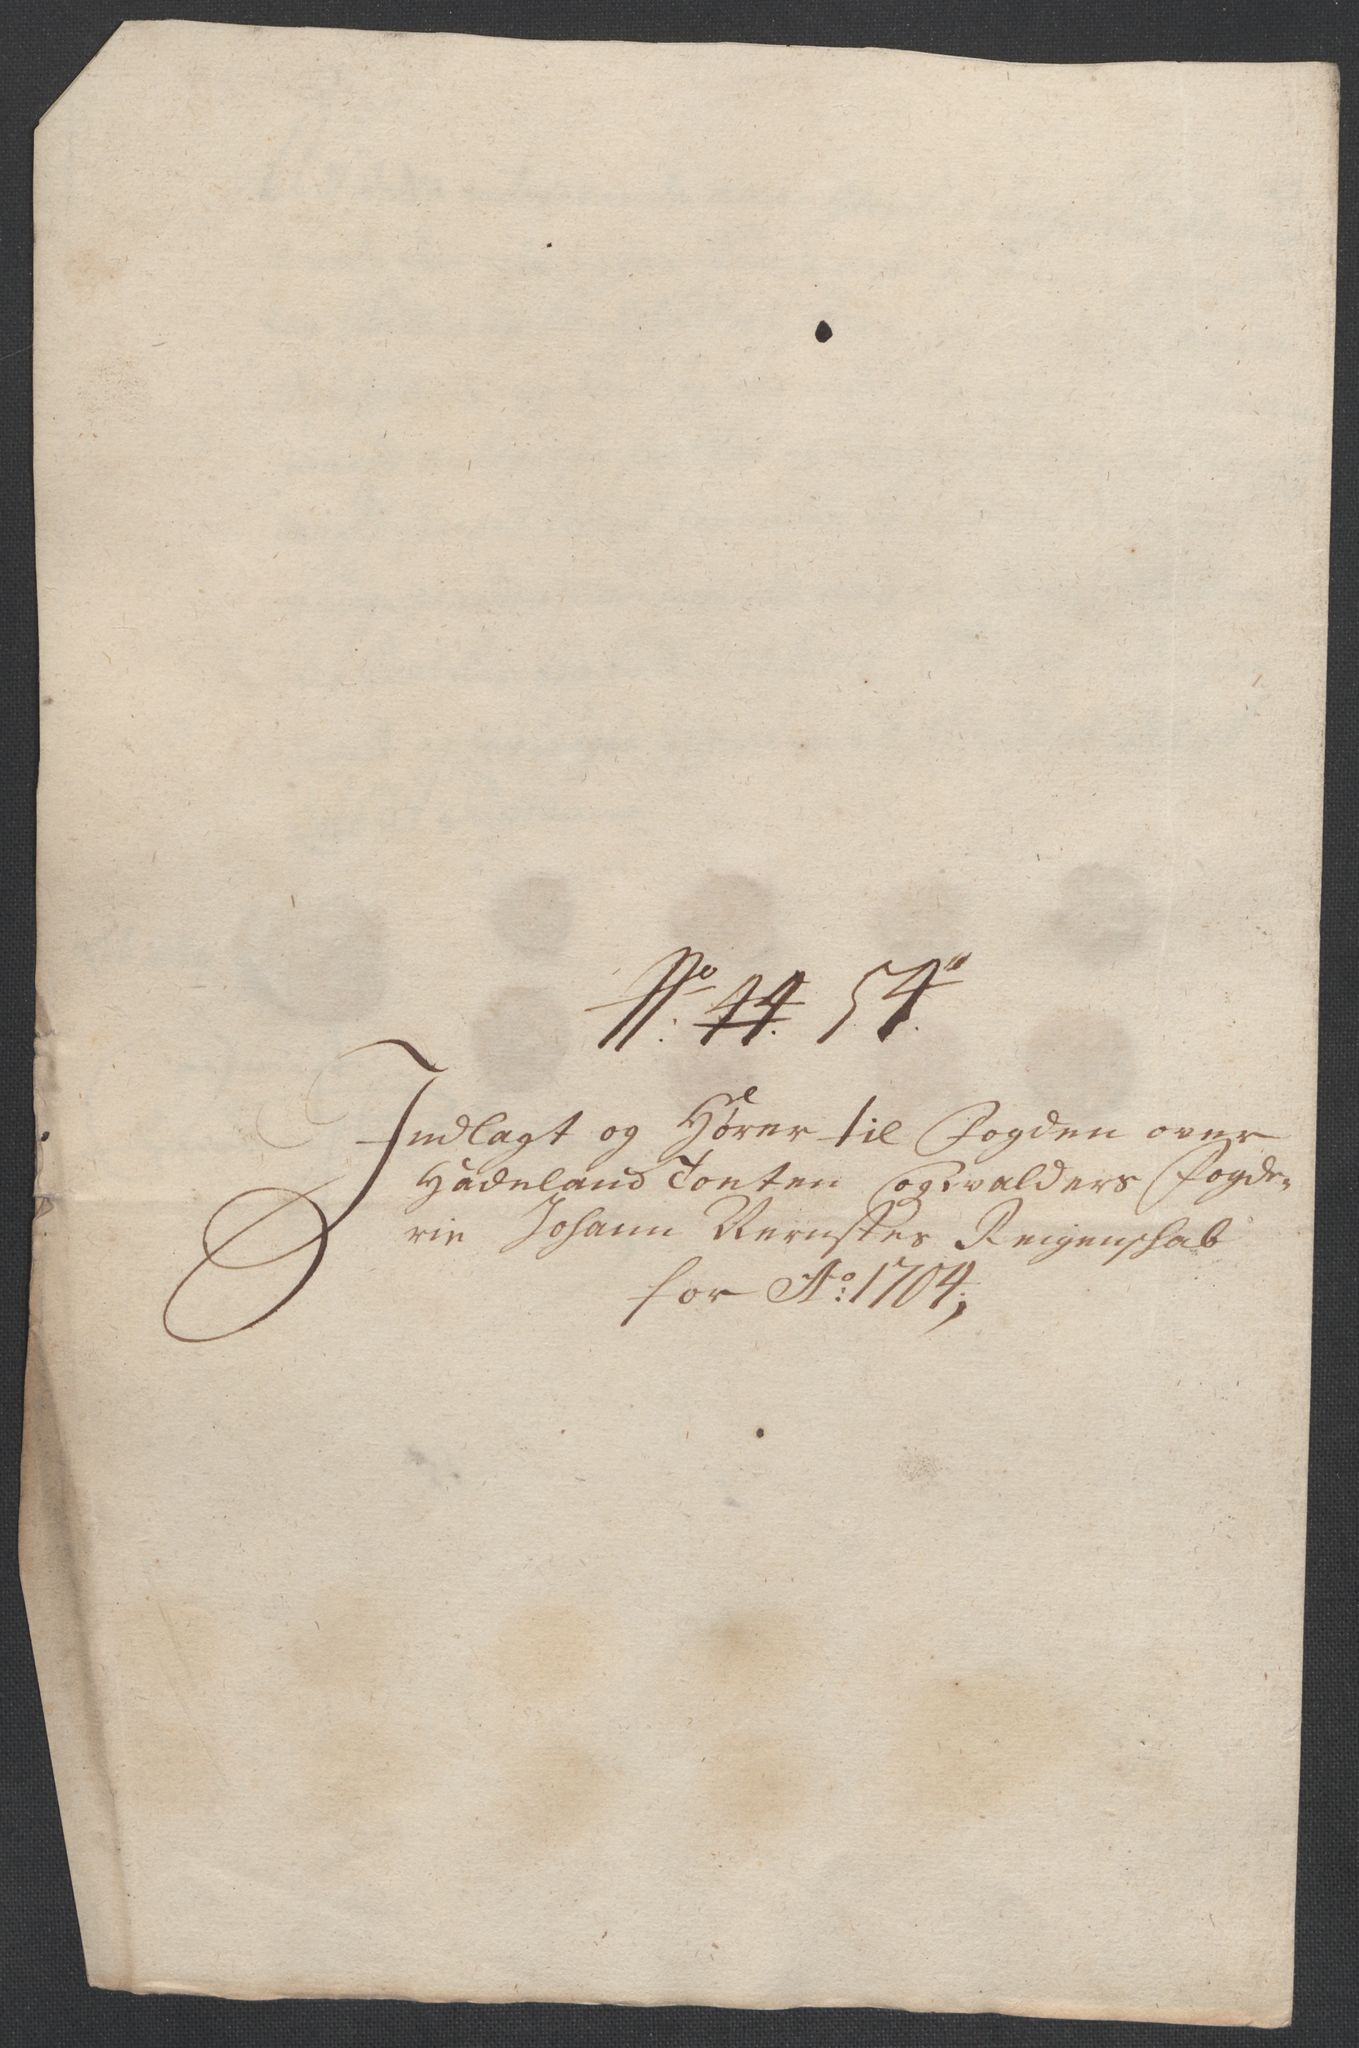 No. 44. 54.
Indlagt og Hører til Fogden over
Hadeland Touten og Walders Fogde-
rie Johann Vernstes Reigenschab
for Ao: 1704,